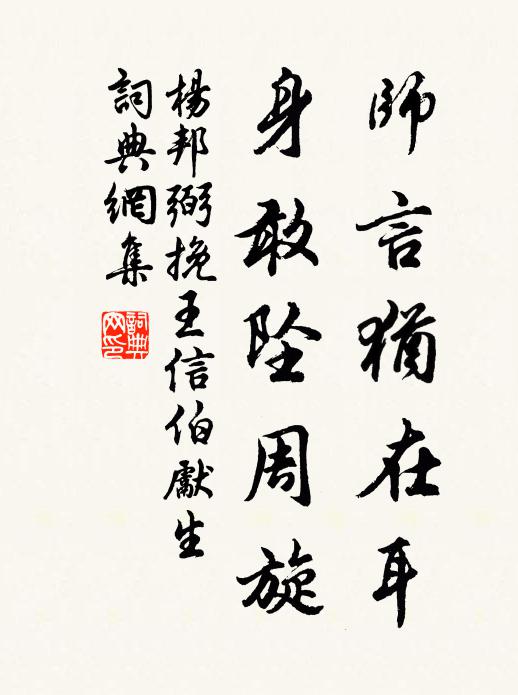 師言猶在耳
身敢坠周旋
楊邦弼挽王信伯獻生
詞典網集
詞典网印